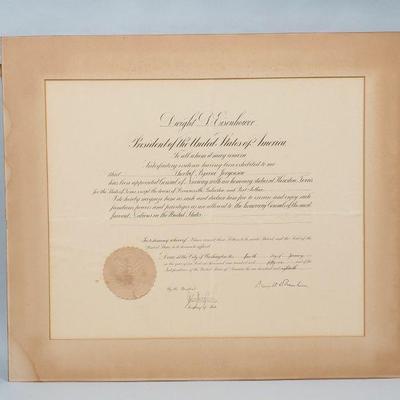 Dwight D. Eisenhower
President of the United States of America
To all whom it may concern
Satisfactory evidence having been exhibited to me
that Jorgensen
has been appointed Consul of Norway with an honorary status at Houston, Texas
for the State of Texas, except the towns of Galveston and Port Arthur
I do hereby recognize him as such and declare him free to exercise and enjoy such
functions, powers and privileges as are allowed to the Consuls of the most
favored Nations in the United States
In testimony whereof I have caused these Letters to be made Patent and the Seal of the
United States to be hereunto affixed
Done at the City of Washington the fourth day of January
in the year of our Lord one thousand nine hundred and fifty-six and of the
Independence of the United States of America the one hundred and eightieth
By the President
Dwight D. Eisenhower
Secretary of State